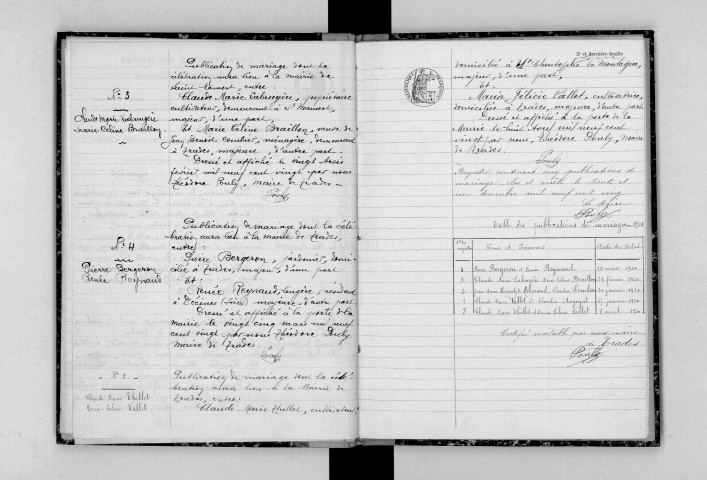 Nº 3
Claude Marie Labruyère
Marie Céline Braillon
Publication de mariage dont la
célébration aura lieu à la mairie de
Saint Mamert, entre:
Claude Marie Labruyère, propriétaire
cultivateur, demeurant à St Mamert,
majeur, d'une part,
Et Marie Céline Braillon, veuve de
Jean Benoit, ménagère, demeurant
à Trades, majeure, d'autre part
Dressé et affiché le vingt trois
février mil neuf cent vingt par nous
Théodore Pouly, maire de Trades
Pouly
Nº 4
Pierre Bergeron
Renée Reynaud
Publication de mariage dont la célé-
bration aura lieu à la mairie de Trades,
entre:
Pierre Bergeron, jardinier, domi-
cilié à Trades, majeur, d'une part
Et:
Renée Reynaud, lingère, résidant
à Décines (Isère) majeure, d'autre part
Dressé et affiché à la porte de la
mairie le vingt cinq mars mil neuf
cent vingt par nous Théodore Pouly
maire de Trades.
Pouly
Nº 5
Claude Marie Thillet
Marie Félicie Vallet
Publication de mariage dont la célé-
bration aura lieu à la Mairie de
Trades, entre:
Claude Marie Thillet, cultivateur,
2e et dernière feuille
domicilié à St Christophe la Montagne,
majeur, d'une part,
Et
Marie Félicie Vallet, cultivatrice,
domiciliée à Trades, majeure, d'autre part.
Dressé et affiché à la porte de la
Mairie le huit Avril mil neuf cent
vingt par nous, Théodore Pouly, maire
de Trades.
Pouly
Registre contenant cinq publications de
mariage, clos et arrêté le trente et
un décembre mil neuf cent vingt
Le Maire
Pouly
Table des publications de mariages 1920
Noms et Prénoms
Date des Actes
4 Pierre Bergeron et Renée Reynaud 25 mars 1920
3 Claude Marie Labruyère Marie Céline Braillon 23 février 1920
janvier 1920
janvier 1920
5 Claude Marie Thillet Marie Félicie Vallet 8 avril 1920
Certifié véritable par nous maire
de Trades
Pouly